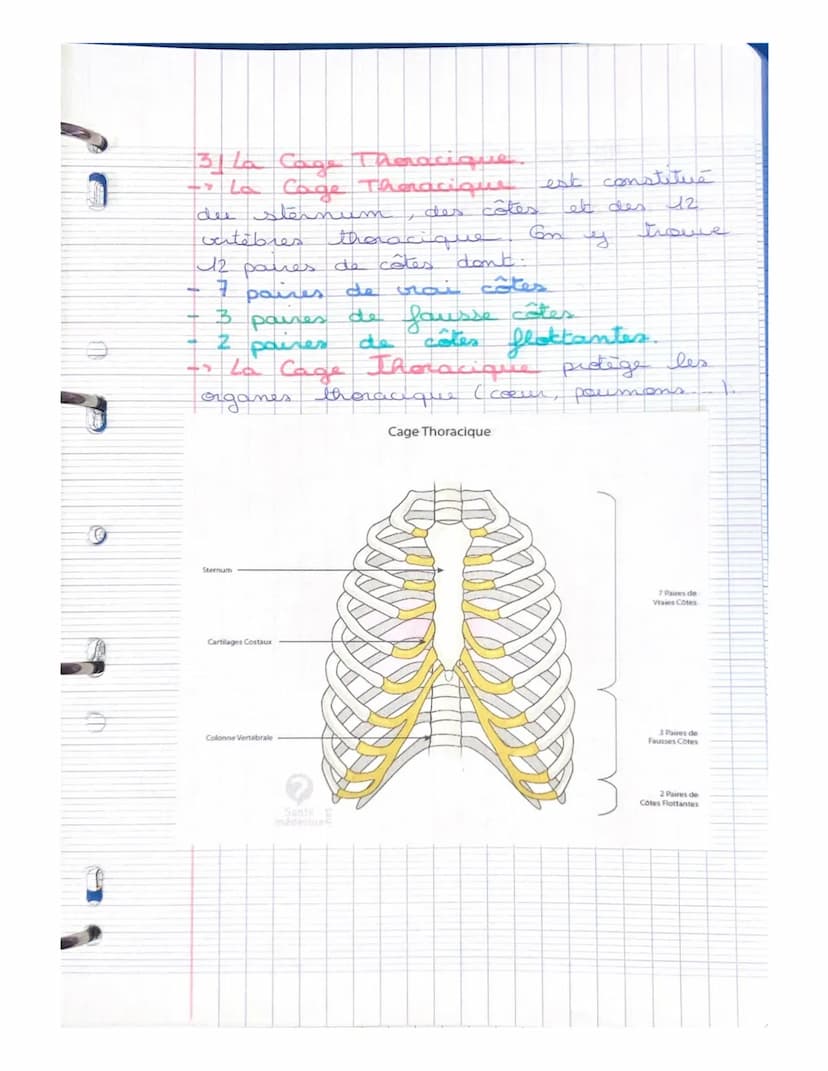 3) La Cage Thoracique.
-> La Cage Thoracique est constitué
du sternum, des côtes et des 12
vertèbres thoracique. On y trouve
12 paires de côtes dont:
- 7 paires de vrai côtes
- 3 paires de fausse côtes
- 2 paires de côtes flottantes.
-> La Cage Thoracique protège les
organes thoracique (cœur, poumons...).
Cage Thoracique
Sternum
7 Paires de
Vraies Côtes
Cartilages Costaux
Colonne Vertébrale
3 Paires de
Fausses Côtes
2 Paires de
Côtes Flottantes
Santé
médecine